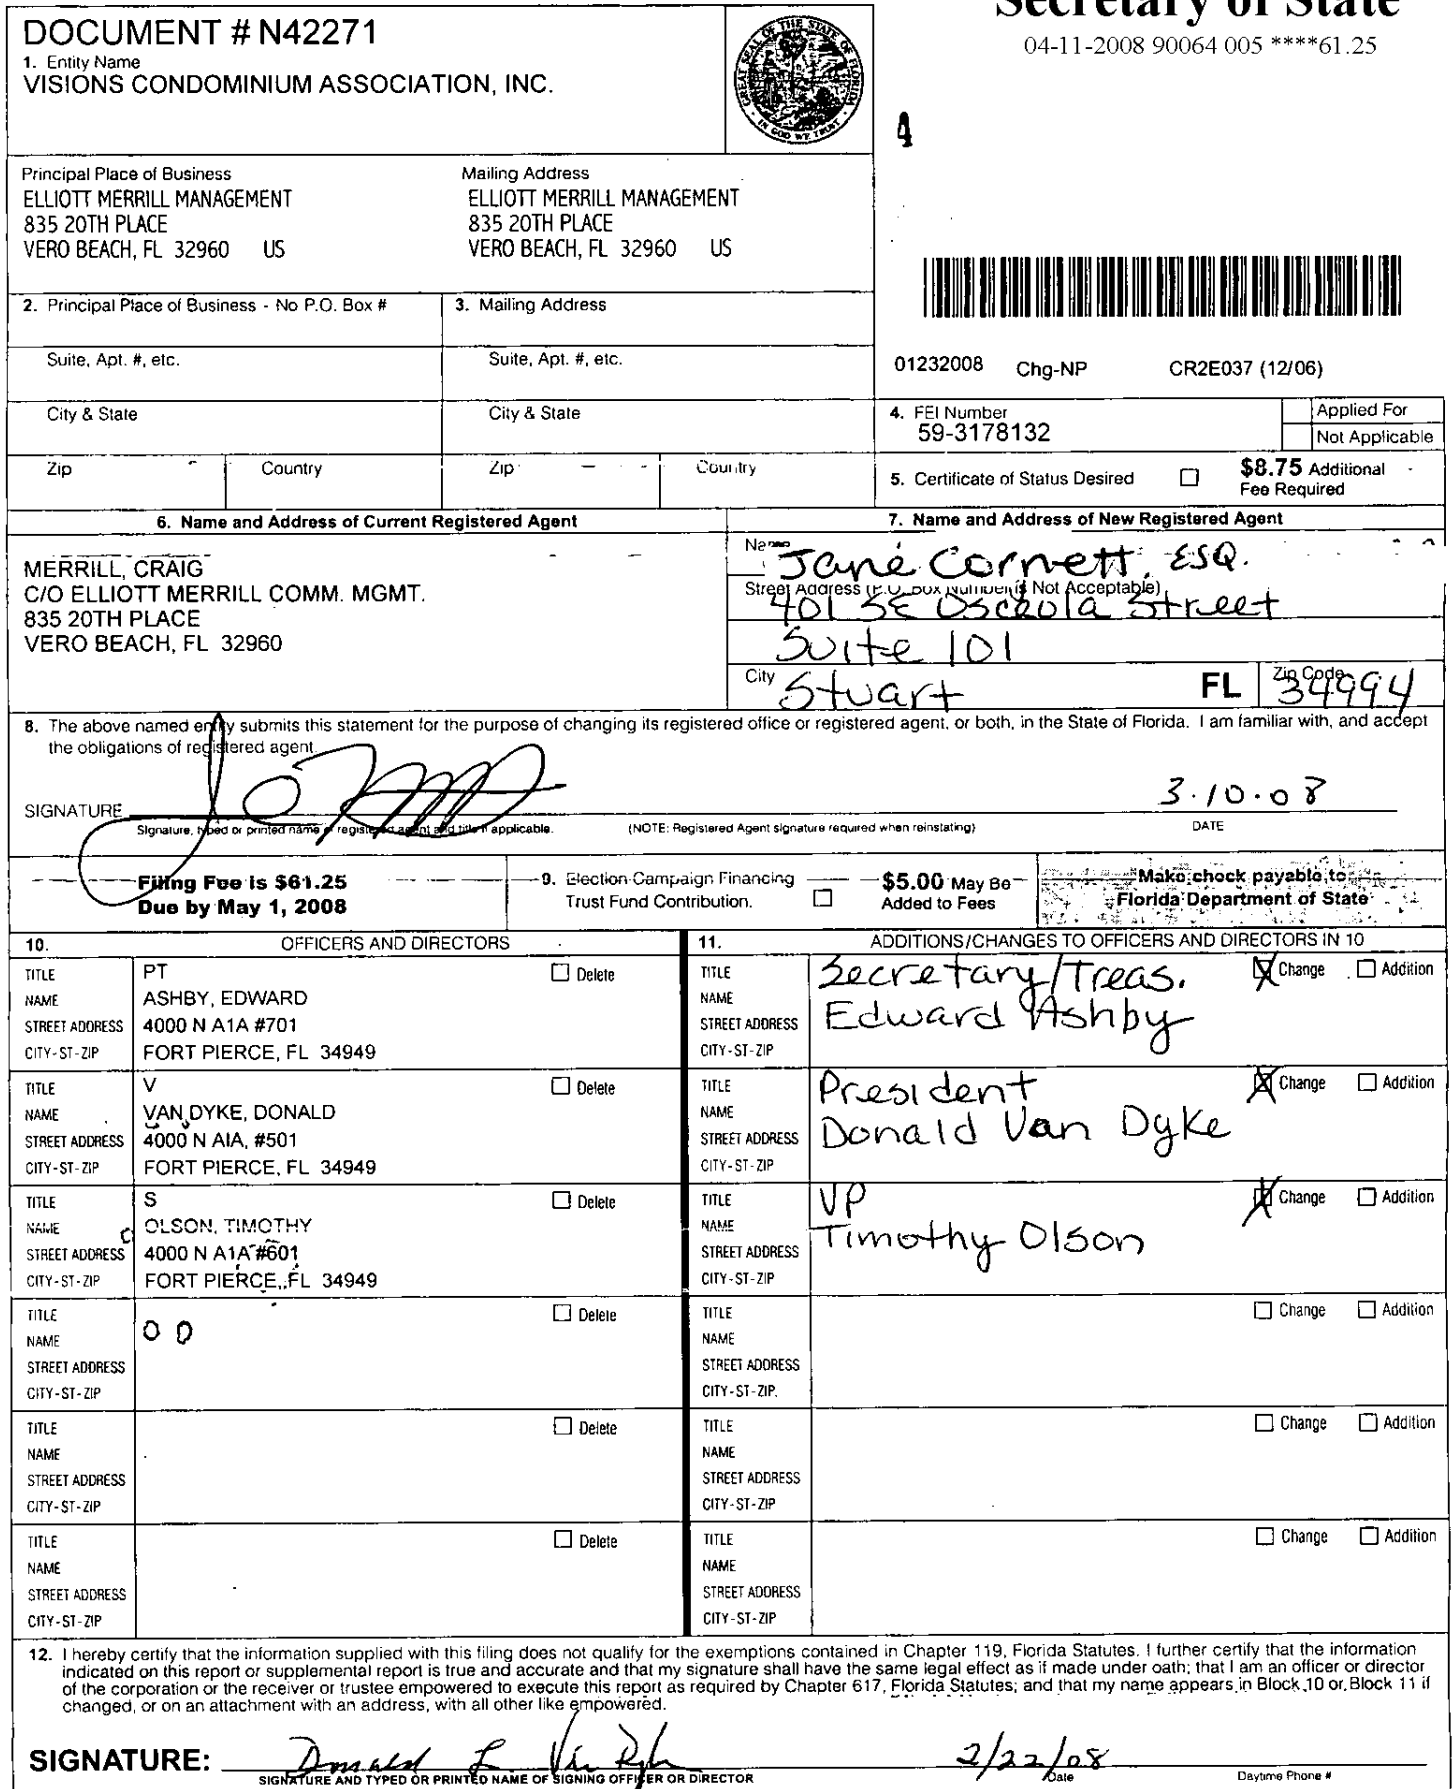 Secretary of State
04-11-2008 90064 005 ****61.25
DOCUMENT # N42271
1. Entity Name
VISIONS CONDOMINIUM ASSOCIATION, INC.
GREAT SEAL OF THE STATE OF FLORIDA
IN GOD WE TRUST
4
Principal Place of Business
ELLIOTT MERRILL MANAGEMENT
835 20TH PLACE
VERO BEACH, FL 32960 US
Mailing Address
ELLIOTT MERRILL MANAGEMENT
835 20TH PLACE
VERO BEACH, FL 32960 US
2. Principal Place of Business - No P.O. Box #
3. Mailing Address
Suite, Apt. #, etc.
Suite, Apt. #, etc.
01232008 Chg-NP CR2E037 (12/06)
City & State
City & State
4. FEI Number
59-3178132
Applied For
Not Applicable
Zip Country
Zip Country
5. Certificate of Status Desired
$8.75 Additional
Fee Required
6. Name and Address of Current Registered Agent
MERRILL, CRAIG
C/O ELLIOTT MERRILL COMM. MGMT.
835 20TH PLACE
VERO BEACH, FL 32960
7. Name and Address of New Registered Agent
Name Jane Cornett, ESQ.
Street Address (P.O. Box Number is Not Acceptable)
401 SE Osceola Street
Suite 101
City Stuart FL Zip Code 34994
8. The above named entity submits this statement for the purpose of changing its registered office or registered agent, or both, in the State of Florida. I am familiar with, and accept
the obligations of registered agent.
SIGNATURE 3.10.08
Signature, typed or printed name of registered agent and title if applicable. (NOTE: Registered Agent signature required when reinstating) DATE
Filing Fee is $61.25
Due by May 1, 2008
9. Election Campaign Financing
Trust Fund Contribution.
$5.00 May Be
Added to Fees
Make check payable to
Florida Department of State
10. OFFICERS AND DIRECTORS
11. ADDITIONS/CHANGES TO OFFICERS AND DIRECTORS IN 10
TITLE PT Delete
NAME ASHBY, EDWARD
STREET ADDRESS 4000 N A1A #701
CITY-ST-ZIP FORT PIERCE, FL 34949
TITLE Secretary/Treas. Change Addition
NAME Edward Ashby
STREET ADDRESS
CITY-ST-ZIP
TITLE V Delete
NAME VAN DYKE, DONALD
STREET ADDRESS 4000 N AIA, #501
CITY-ST-ZIP FORT PIERCE, FL 34949
TITLE President Change Addition
NAME Donald Van Dyke
STREET ADDRESS
CITY-ST-ZIP
TITLE S Delete
NAME OLSON, TIMOTHY
STREET ADDRESS 4000 N A1A #601
CITY-ST-ZIP FORT PIERCE, FL 34949
TITLE VP Change Addition
NAME Timothy Olson
STREET ADDRESS
CITY-ST-ZIP
TITLE Delete
NAME
STREET ADDRESS
CITY-ST-ZIP
TITLE Change Addition
NAME
STREET ADDRESS
CITY-ST-ZIP.
TITLE Delete
NAME
STREET ADDRESS
CITY-ST-ZIP
TITLE Change Addition
NAME
STREET ADDRESS
CITY-ST-ZIP
TITLE Delete
NAME
STREET ADDRESS
CITY-ST-ZIP
TITLE Change Addition
NAME
STREET ADDRESS
CITY-ST-ZIP
12. I hereby certify that the information supplied with this filing does not qualify for the exemptions contained in Chapter 119, Florida Statutes. I further certify that the information
indicated on this report or supplemental report is true and accurate and that my signature shall have the same legal effect as if made under oath; that I am an officer or director
of the corporation or the receiver or trustee empowered to execute this report as required by Chapter 617, Florida Statutes; and that my name appears in Block 10 or Block 11 if
changed, or on an attachment with an address, with all other like empowered.
SIGNATURE: Donald L. Van Dyke 2/22/08
SIGNATURE AND TYPED OR PRINTED NAME OF SIGNING OFFICER OR DIRECTOR Date Daytime Phone #